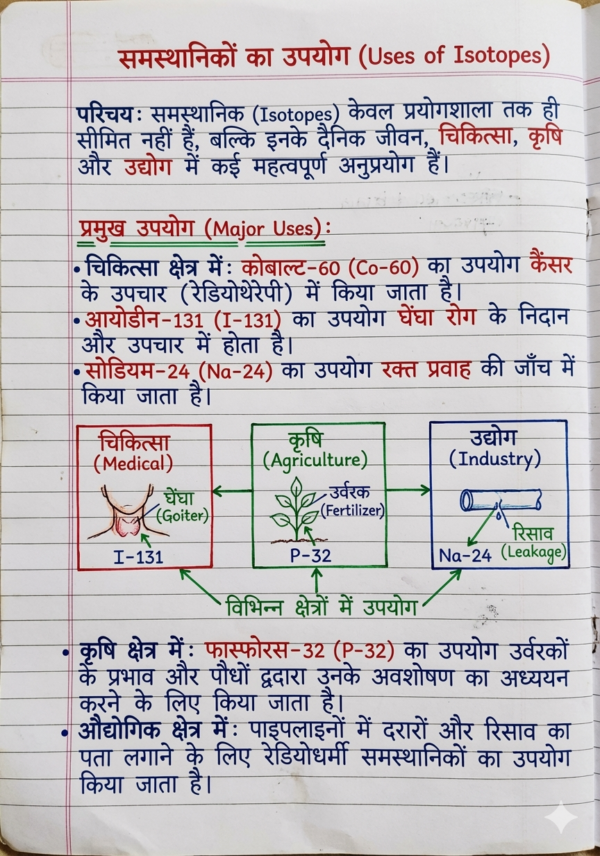 समस्थानिकों का उपयोग (Uses of Isotopes)
परिचय: समस्थानिक (Isotopes) केवल प्रयोगशाला तक ही
सीमित नहीं हैं, बल्कि इनके दैनिक जीवन, चिकित्सा, कृषि
और उद्योग में कई महत्वपूर्ण अनुप्रयोग हैं।
प्रमुख उपयोग (Major Uses):
• चिकित्सा क्षेत्र में: कोबाल्ट-60 (Co-60) का उपयोग कैंसर
के उपचार (रेडियोथेरेपी) में किया जाता है।
• आयोडीन-131 (I-131) का उपयोग घेंघा रोग के निदान
और उपचार में होता है।
• सोडियम-24 (Na-24) का उपयोग रक्त प्रवाह की जाँच में
किया जाता है।
चिकित्सा
(Medical)
घेंघा
(Goiter)
I-131
कृषि
(Agriculture)
उर्वरक
(Fertilizer)
P-32
उद्योग
(Industry)
रिसाव
(Leakage)
Na-24
विभिन्न क्षेत्रों में उपयोग
• कृषि क्षेत्र में: फास्फोरस-32 (P-32) का उपयोग उर्वरकों
के प्रभाव और पौधों द्वदारा उनके अवशोषण का अध्ययन
करने के लिए किया जाता है।
• औद्योगिक क्षेत्र में: पाइपलाइनों में दरारों और रिसाव का
पता लगाने के लिए रेडियोधर्मी समस्थानिकों का उपयोग
किया जाता है।